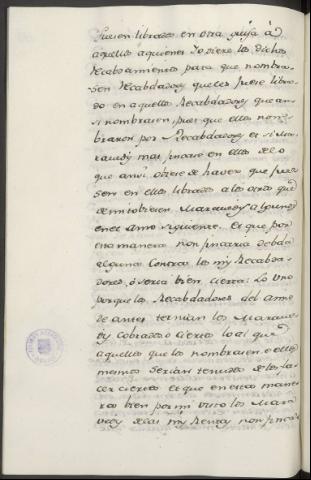 fuesen librados en otra guisa à
aquellos aquienes Yo diere los dichos
Recabdamientos para que nombra-
sen Recabdadores queles fuese libra-
do en aquellos Recabdadores que an-
si nombrasen, pues que ellos nom-
braron por Recabdadores et si Ma-
ravedis mas fincase en ellos de lo
que ansi obiese de haver que fue-
sen en ellos librados a los otros que
de mi tobiesen Maravedis algunos
en el anno siguiente. Et que por
esta manera non fincaria debda
alguna contra los mis Recabda-
dores, ò seria bien cierta: Lo uno
porque los Recabdadores del anno
de antes ternian los Marave-
dis cobrados: ò cierto lo al que
aquellos que los nombrasen, è ellos
mesmos serian tenudos de los fa-
cer ciertos et que en esta mane-
ra bien por mi visto los Mara-
vedis de las mis Rentas non finca-